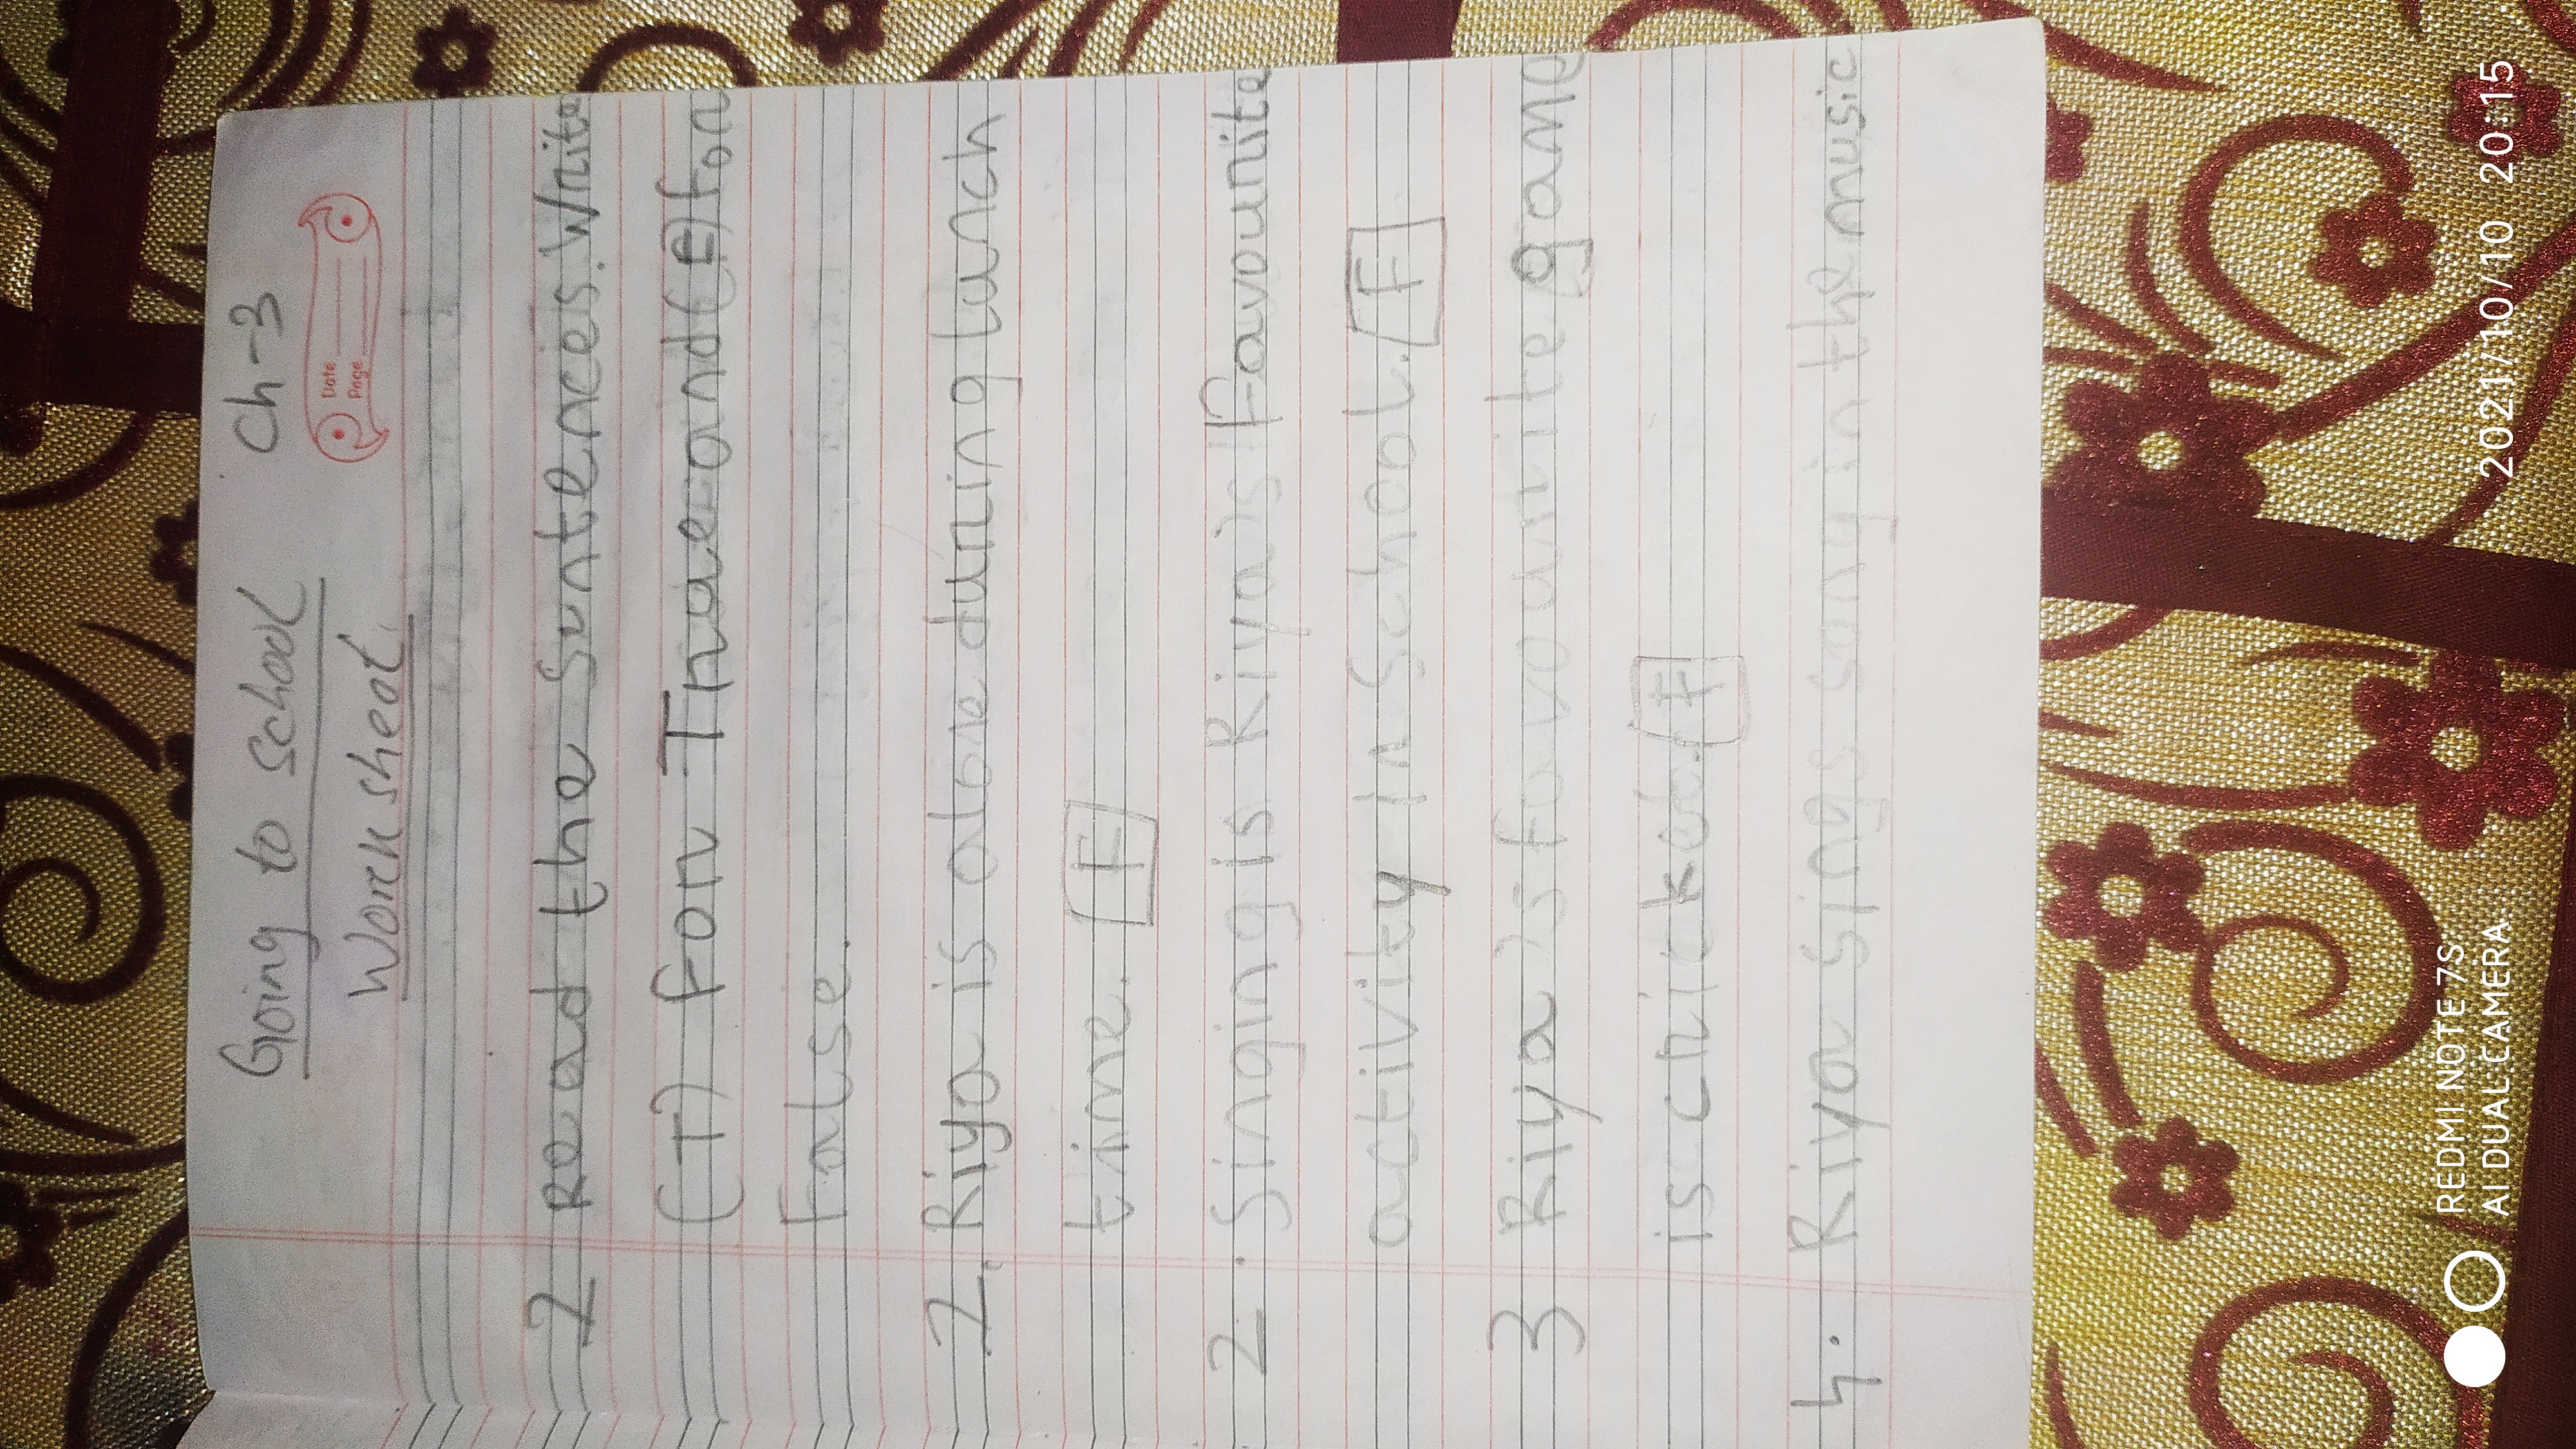 Going to School Ch-3
Work sheet
Date
Page
2 Read the Sentences. Write
(T) for True and (F) for
False.
2. Riya is alone during lunch
time. F
2. Singing is Riya's Favourite
activity in School. F
3 Riya's favourite game
is cricket. F
4. Riya Sings song in the music
REDMI NOTE 7S
AI DUAL CAMERA
2021/10/10 20:15